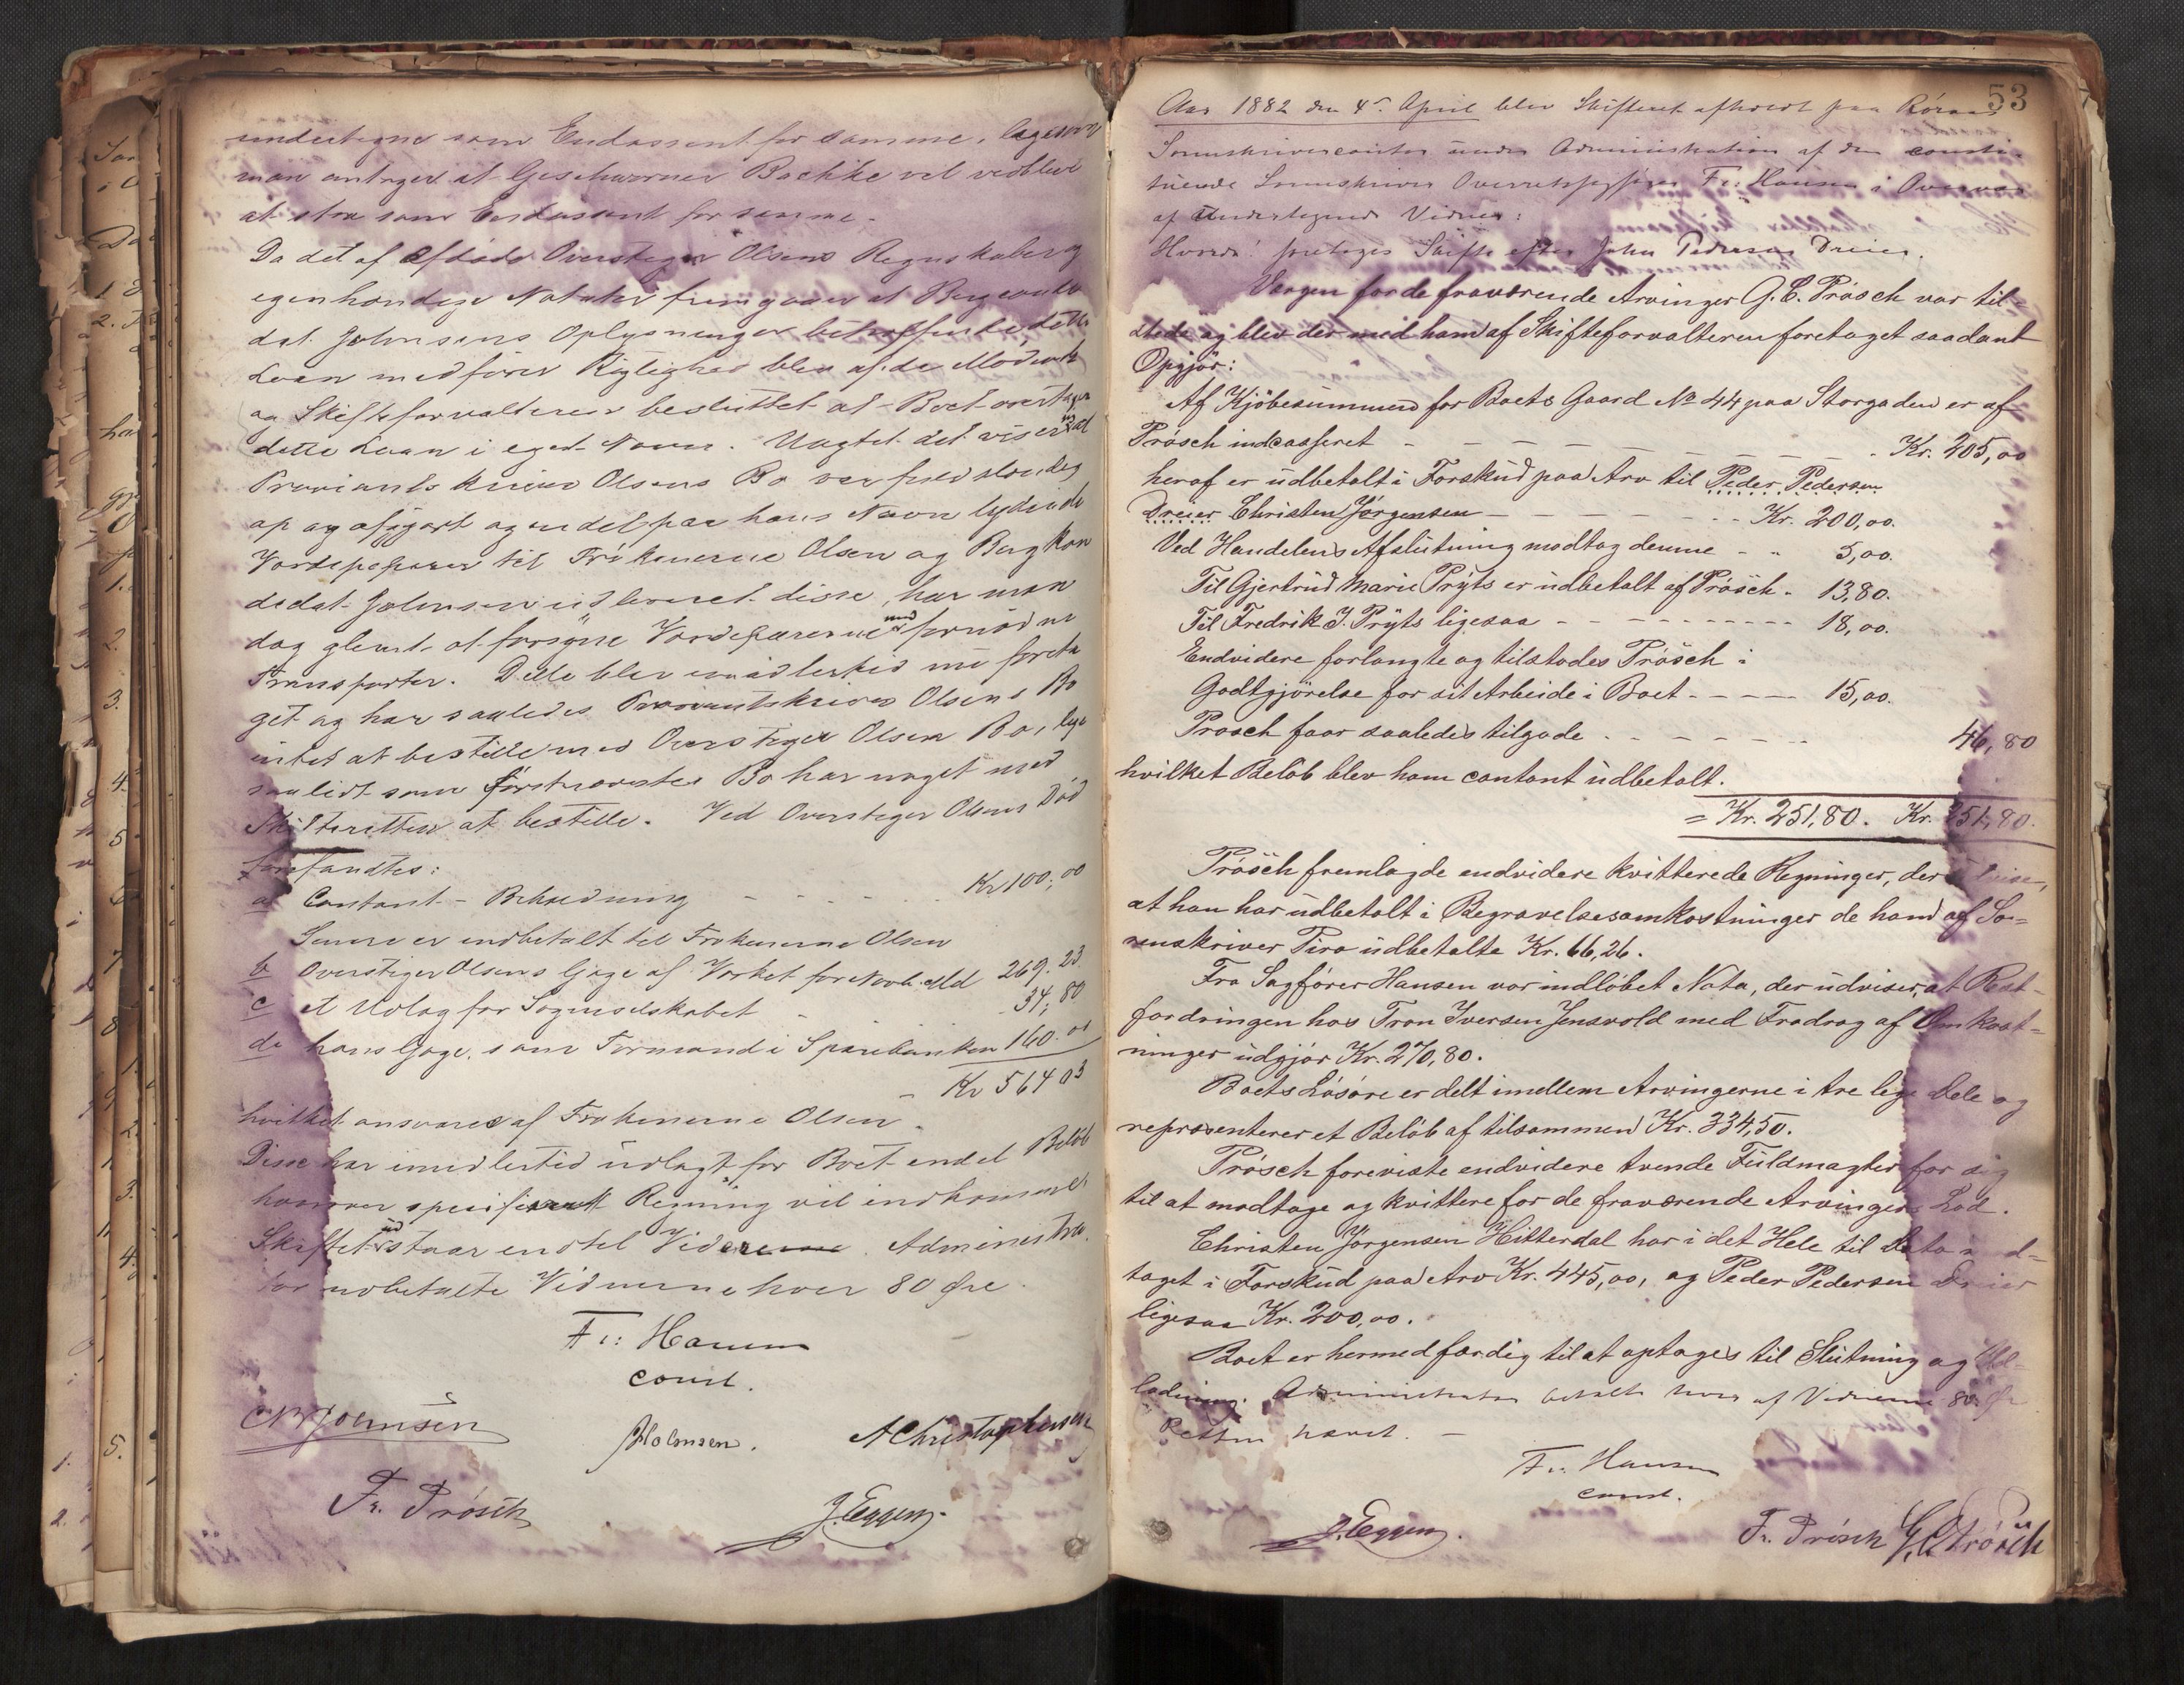 undertegne som Endossent for samme, ligesom
man antager at Geschworner Bachke vil vedblive
at staa som Endossent for samme.
Da det af afdøde Overstiger Olsens Regnskaber og
egenhændige Notater fremgaaer at Bergcandi
dat Johnsens Oplysninger betræffende dette
Laan medfører Rigtighed blev af de Mødende
og Skifteforvalteren besluttet at Boet overtager
dette Laan i eget Navn. Uagtet det viser sig at
Proviantskriver Olsens Bo var fuldstændig
op og afgjort og endel paa hans Navn lydende
Værdipapirer til Frøkenerne Olsen og Bergkan
didat Johnsen udleveret disse, har man
dog glemt at forsyne Værdipapirerne med fornødne
Transporter. Dette blev imidlertid nu foreta
get og har saaledes Proviantskriver Olsens Bo
intet at bestille med Overstiger Olsens Bo, lige
saalidt som førstnævntes Bo har noget med
Skifteretten at bestille. Ved Overstiger Olsens Død
forefandtes:
a Contant-Beholdning - - - - Kr 100,00
Senere er indbetalt til Frøkenerne Olsen
b Overstiger Olsens Gage af Værket for Novb. Md 269.23
c et Udlag for Sogneselskabet - 34,80
d hans Gage som Formand i Sparebanken 160.00
Kr 564 03
hvilket ansvares af Frøkenerne Olsen.
Disse har imidlertid udlagt for Boet endel Beløb
hvorover specificeret Regning vil indkomme.
Skiftet udstaar endel Videre. Administra
tor udbetalte Vidnerne hver 80 Øre
Fr: Hansen
const.
Johnsen
Holmsen.
A Christophersen
Fr. Prösch
J. Eggen.
53
Aar 1882 den 4de April blev Skifteret afholdt paa Röraas
Sorenskrivercontor under Administration af den consti-
tuerede Sorenskriver Overretssagfører Fr: Hansen i Overvær
af undertegnede Vidner:
Hvorda! foretoges Skifte efter John Pedersen Dreier.
Værgen for de fraværende Arvinger G. C. Prösch var til-
stede og blev der med ham af Skifteforvalteren foretaget saadant
Opgjör:
Af Kjöbesummen for Boets Gaard No 44 paa Storgaden er af
Prösch indcasseret - - - - - - - - Kr. 205,00
heraf er udbetalt i Forskud paa Arv til Peder Pedersen
Dreier Christen Jörgensen - - - - - - - Kr. 200,00.
Ved Handelens Afslutning modtog denne - " 5,00.
Til Gjertrud Marie Prÿts er udbetalt af Prösch - 13,80.
Til Fredrik J. Prÿts ligesaa - - - - - - - - - 18,00.
Endvidere forlangte og tilstodes Prösch i
Godtgjörelse for sit Arbeide i Boet - - - - - 15,00.
Prösch faar saaledes tilgode - - - - - - - 46,80
hvilket Belöb blev ham contant udbetalt.
= Kr. 251,80. Kr. 251,80.
Prösch fremlagde endvidere kvitterede Regninger, der udvise,
at han har udbetalt i Begravelsesomkostninger de ham af So-
renskriver Piro udbetalte Kr. 66,26.
Fra Sagförer Hansen var indlöbet Nota, der udviser, at Rest-
fordringen hos Tron Iversen Jensvold med Fradrag af Omkost-
ninger udgjör Kr. 270,80.
Boets Lösöre er delt imellem Arvingerne i tre lige Dele og
repræsenterer et Belöb af tilsammen Kr. 334,50.
Prösch foreviste endvidere tvende Fuldmagter for sig
til at modtage og kvittere for de fraværende Arvingers Lod.
Christen Jörgensen Hitterdal har i det Hele til Dato mod-
taget i Forskud paa Arv Kr. 445,00, og Peder Pedersen Dreier
ligesaa Kr. 200,00.
Boet er hermed færdig til at optages til Slutning og Ud-
lodning. Administrator betalte hver af Vidnerne 80 Øre
Retten hævet. -
Fr: Hansen
const.
J. Eggen.
Fr. Prösch G. C. Prösch